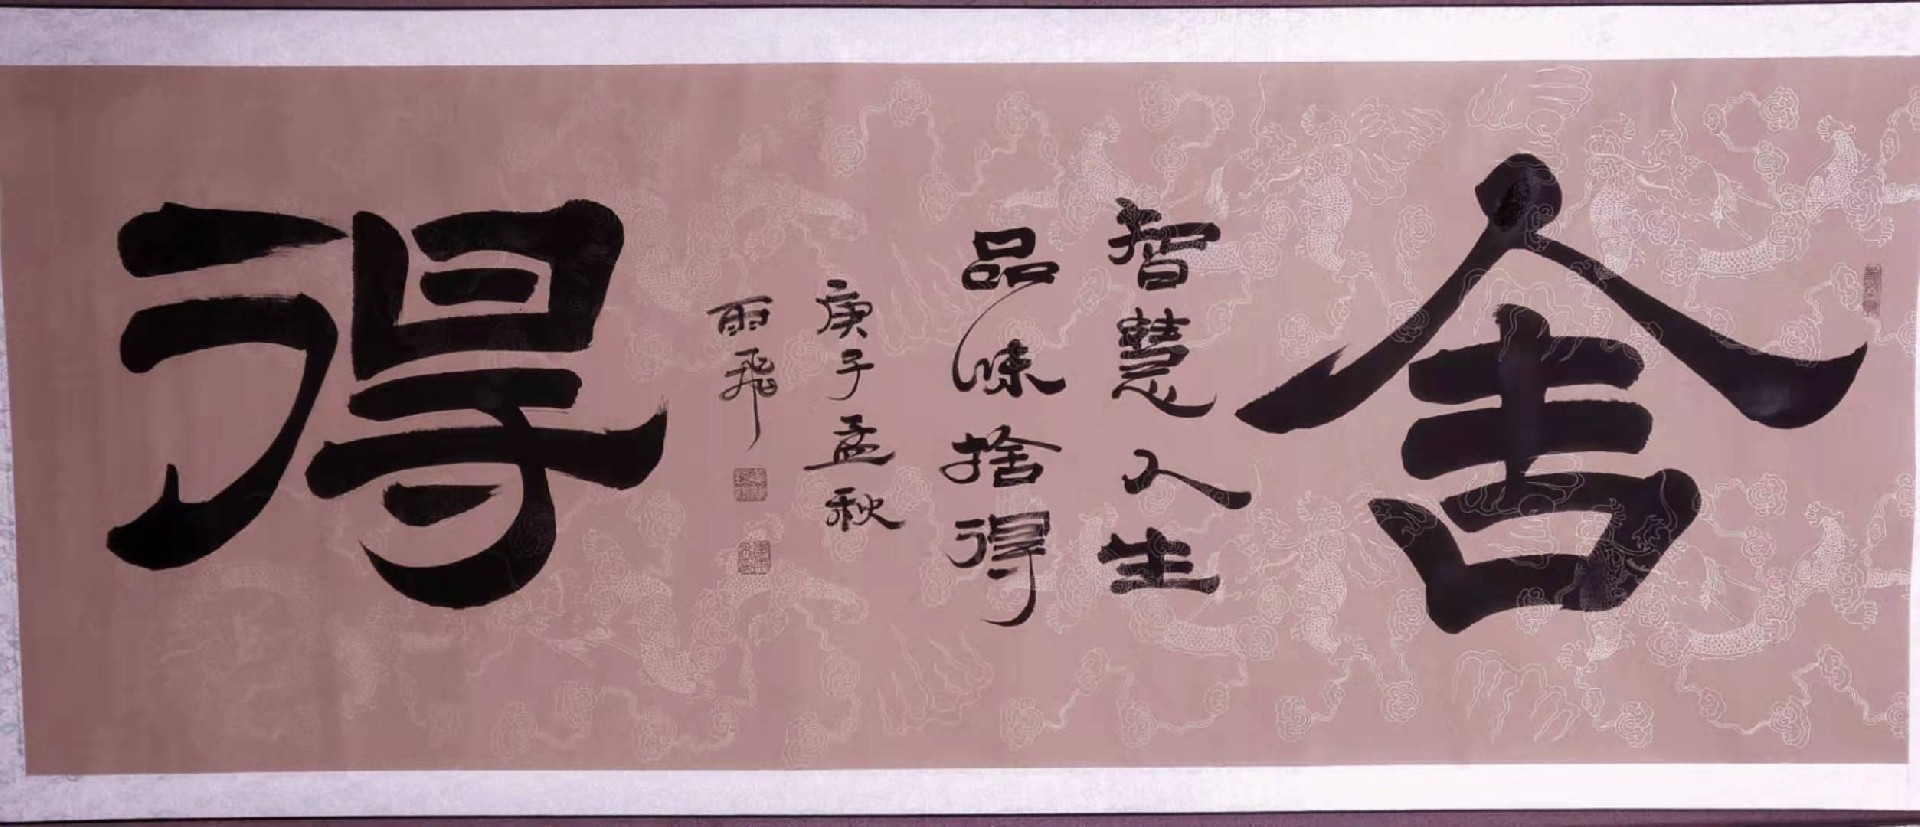 舍
智慧人生
品味捨得
庚子孟秋
雨飛
得